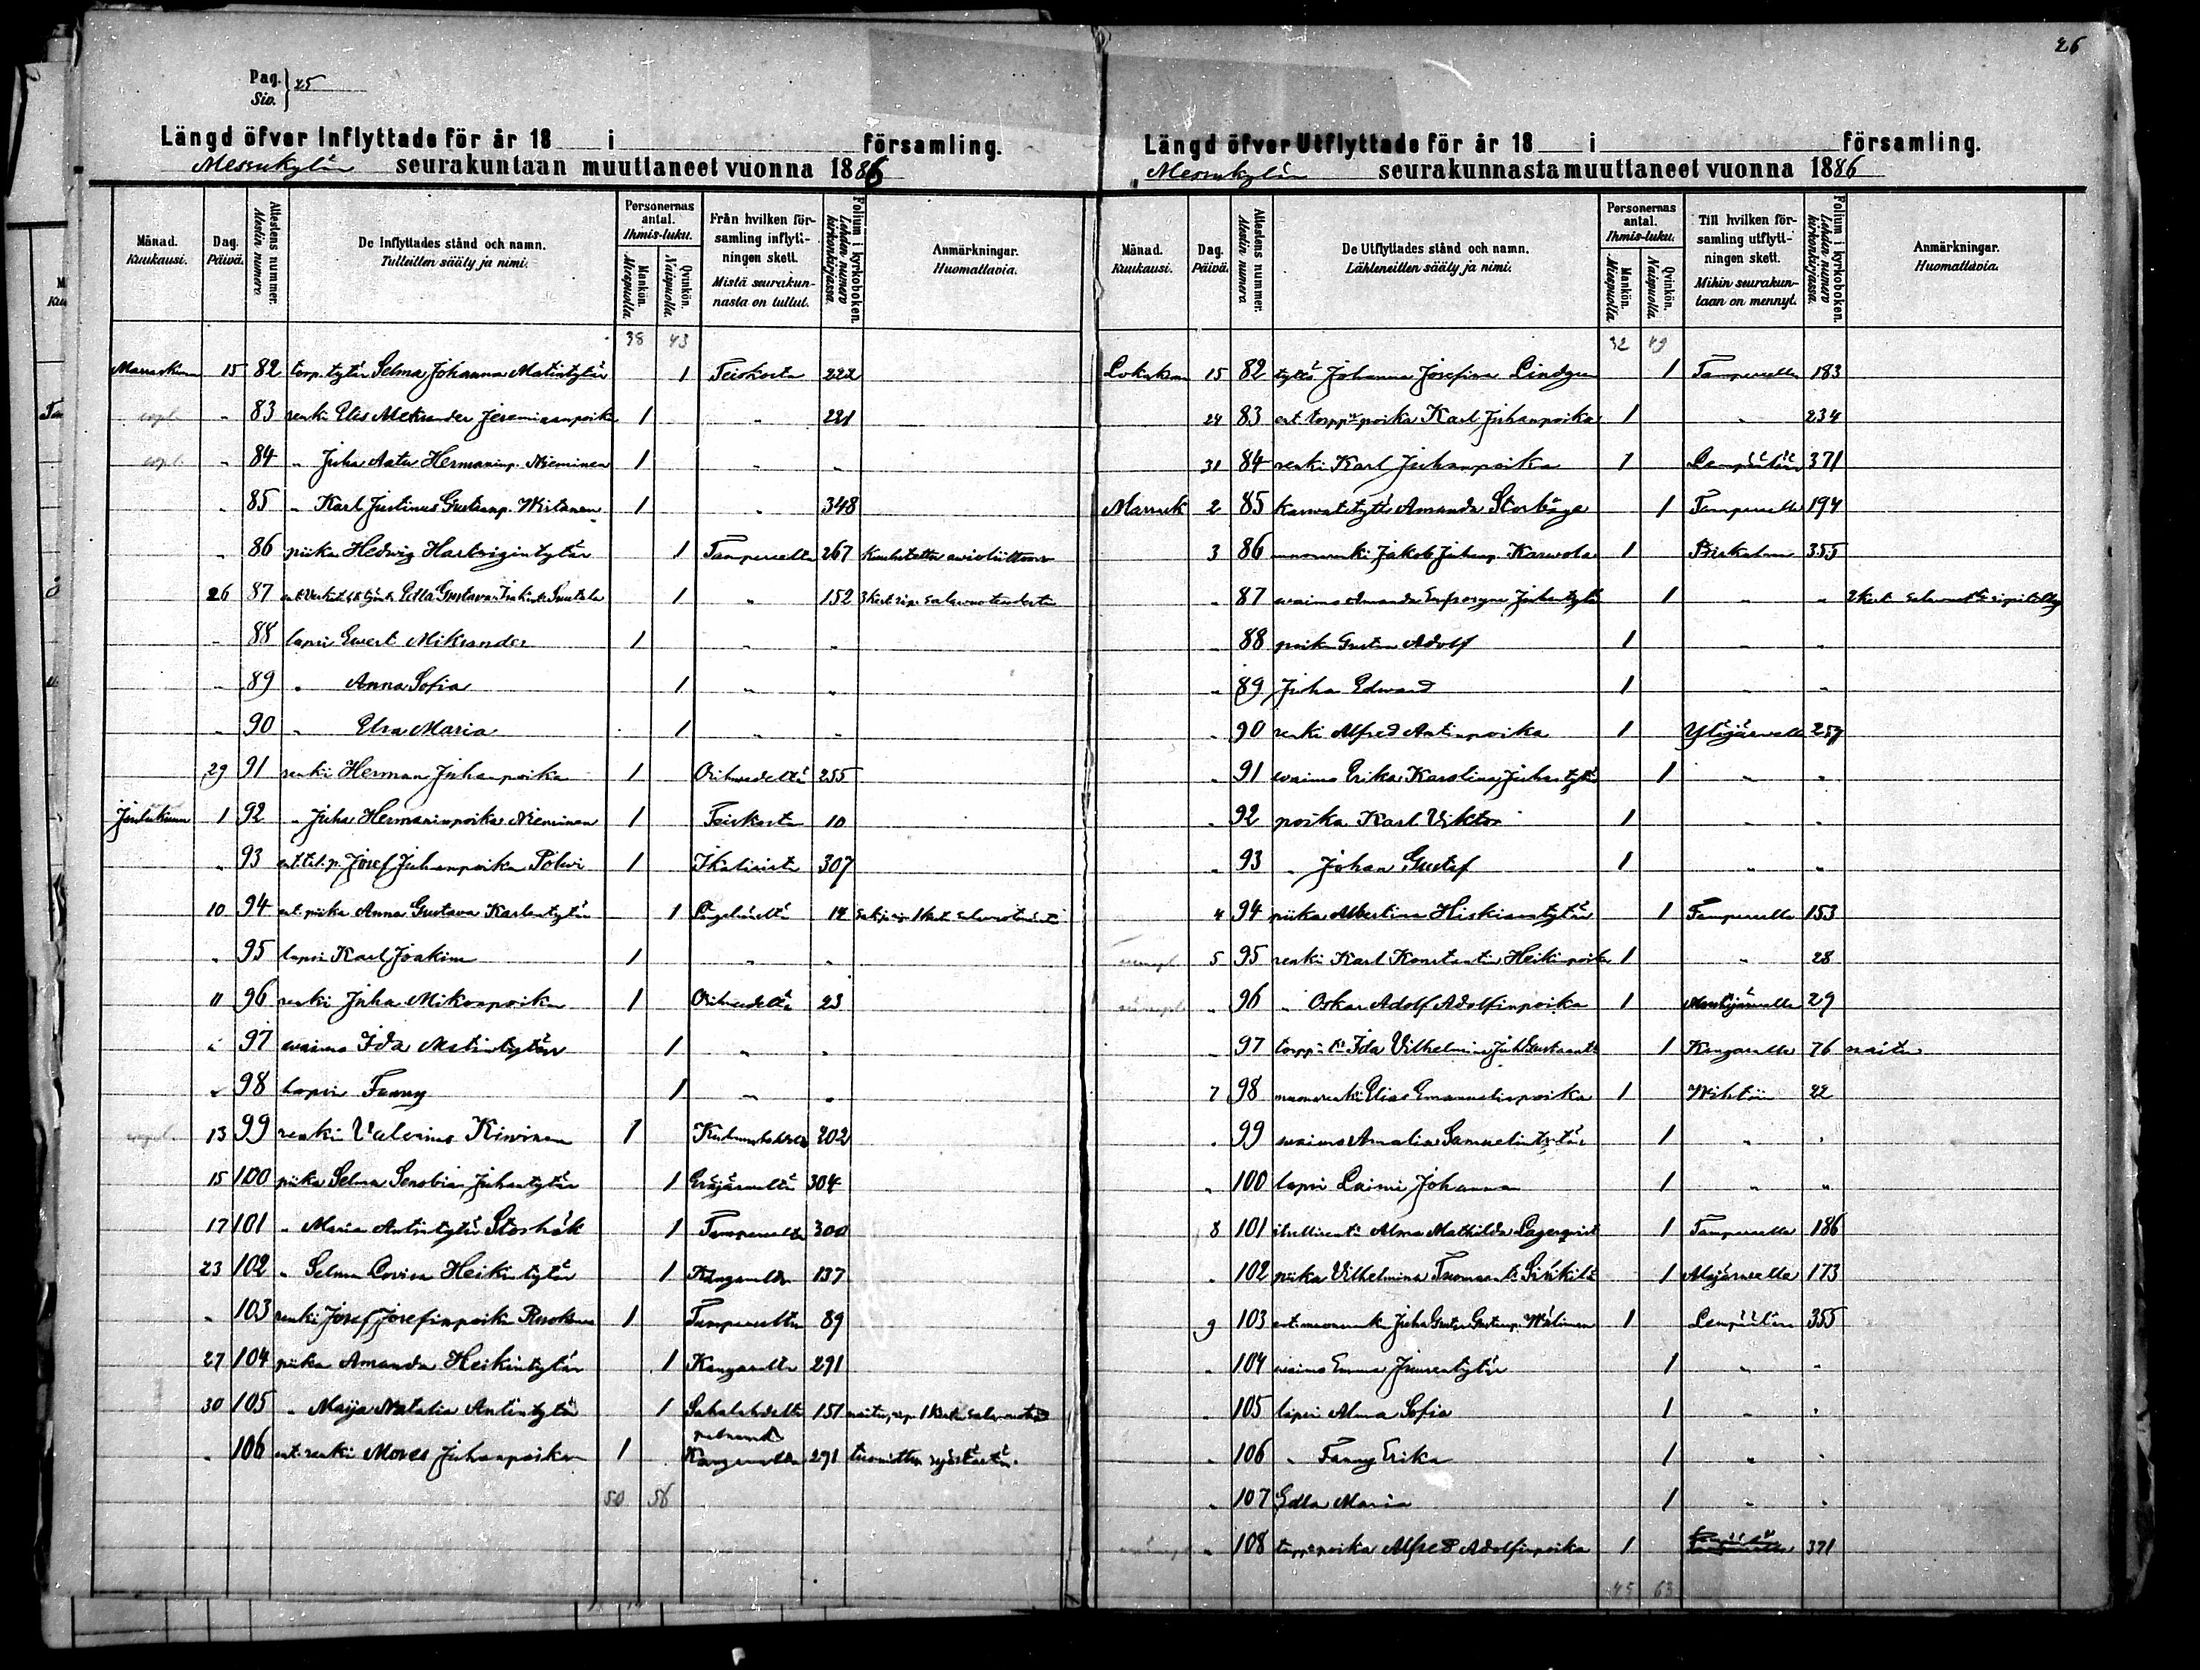 Pag. Siv. } 25
Längd öfver Inflyttade för år 18 i församling.
Messukylän seurakuntaan muuttaneet vuonna 1886
Månad. Kuukausi.
Dag. Päivä.
Attestens nummer. Atestin numero
De Inflyttades stånd och namn. Tulleitten sääty ja nimi.
Personernas antal. Ihmis-luku.
Mankön. Miespuolia.
Qvinkön. Naispuolia.
Från hvilken församling inflyttningen skett. Mistä seurakunnasta on tullut.
Folium i kyrkoboken. Lehden numero kirkonkirjassa.
Anmärkningar. Huomattavia.
38 43
Marraskuun 15 82 torp. tytär Selma Johanna Matintytär 1 Teiskosta 222
" 83 renki Elis Aleksander Jeremiaanpoika 1 " 221
" 84 " Juha Aatu Hermaninp. Nieminen 1 " "
" 85 " Karl Justinus Gustavp. Wirtanen 1 " 348
" 86 piika Hedwig Hartvigintytär 1 Tampereelta 267 Kuulutettu avioliittoon
26 87 Edla Gustava 1 " 152
" 88 lapsi Ewert Mikrander 1 " "
" 89 " Anna Sofia 1 " "
" 90 " Elsa Maria 1 " "
29 91 renki Herman Juhanpoika 1 Orihvedeltä 255
Joulukuun 1 92 " Juha Hermaninpoika Nieminen 1 Teiskosta 10
" 93 Josef Juhanpoika Pölvi 1 Ikalisista 307
10 94 ent. piika Anna Gustava Karlentytär 1 14
" 95 lapsi Karl Joakim 1 " "
11 96 renki Juha Mikonpoika 1 Orihvedeltä 23
" 97 waimo Ida Matintytär 1 " "
" 98 lapsi Fanny 1 " "
13 99 renki Valerius Kivinen 1 202
15 100 piika Selma Senobia Juhantytär 1 Eräjärveltä 304
17 101 " Maria Antintytär Storhök 1 Tampereelta 300
23 102 " Selma Lovisa Heikintytär 1 Kangasalta 137
" 103 renki Josef Josefinpoika 1 Tampereelta 89
27 104 piika Amanda Heikintytär 1 Kangasalta 291
30 105 " Maija Natalia Antintytär 1 Sahalahdelta 151
" 106 ent. renki Moses Juhanpoika 1 Kangasalta 291
50 56
26
Längd öfver Utflyttade för år 18 i församling.
Messukylän seurakunnasta muuttaneet vuonna 1886
Månad. Kuukausi.
Dag. Päivä.
Attestens nummer. Atestin numera
De Utflyttades stånd och namn. Lähteneitten sääty ja nimi.
Personernas antal. Ihmis-luku.
Mankön. Miespuolia
Qvinkön. Naispuolia.
Till hvilken församling utflyttningen skett. Mihin seurakuntaan on mennyt.
Folium i kyrkoboken. Lehden numero kirkonkirjassa.
Anmärkningar. Huomattavia.
32 49
Lokakuun 15 82 tyttö Johanna Josefina Lindgren 1 Tampereelle 183
24 83 Karl Juhanpoika 1 " 234
31 84 renki Karl Juhanpoika 1 Lempäälään 371
Marrask 2 85 Amanda Storbåge 1 Tampereelle 194
3 86 Jakob Juhanp. Karvola 1 Pirkalaan 355
" 87 waimo Amanda Eufrosyne Juhantytär 1 " "
" 88 poika Gustav Adolf 1 " "
" 89 Juha Edward 1 " "
" 90 renki Alfred Antinpoika 1 Ylöjärvelle 257
" 91 waimo Erika Karolina Juhantytär 1 " "
" 92 poika Karl Viktor 1 " "
" 93 " Johan Gustaf 1 " "
4 94 piika Albertina Hiskiantytär 1 Tampereelle 153
5 95 renki Karl Konstantin Heikinpoika 1 " 28
" 96 " Oskar Adolf Adolfinpoika 1 29
" 97 Ida Vilhelmina 1 Kangasalle 76 naitu
7 98 muonarenki Elias Emanuelinpoika 1 Wihtiin 22
" 99 waimo Amalia Samuelintytär 1 " "
" 100 lapsi Laimi Johanna 1 " "
8 101 Alma Mathilda Lagerqvist 1 Tampereelle 186
" 102 piika Vilhelmina Tuomaant. Sirkilä 1 173
9 103 Juha Gusta Gustavp. Wälimen 1 Lempäälään 355
" 104 waimo Emma 1 " "
" 105 lapsi Alma Sofia 1 " "
" 106 " Fanny Erika 1 " "
" 107 Edla Maria 1 " "
" 108 torppripoika Alfred Adolfinpoika 1 371
45 63